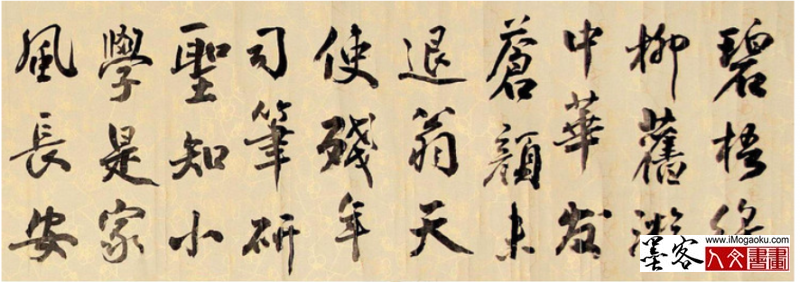 碧梧
柳舊游
中華发
蒼顏未
退翁天
使殘年
司筆研
聖知小
學是家
風長安
墨客
www.iMogaoku.com
人文書畫